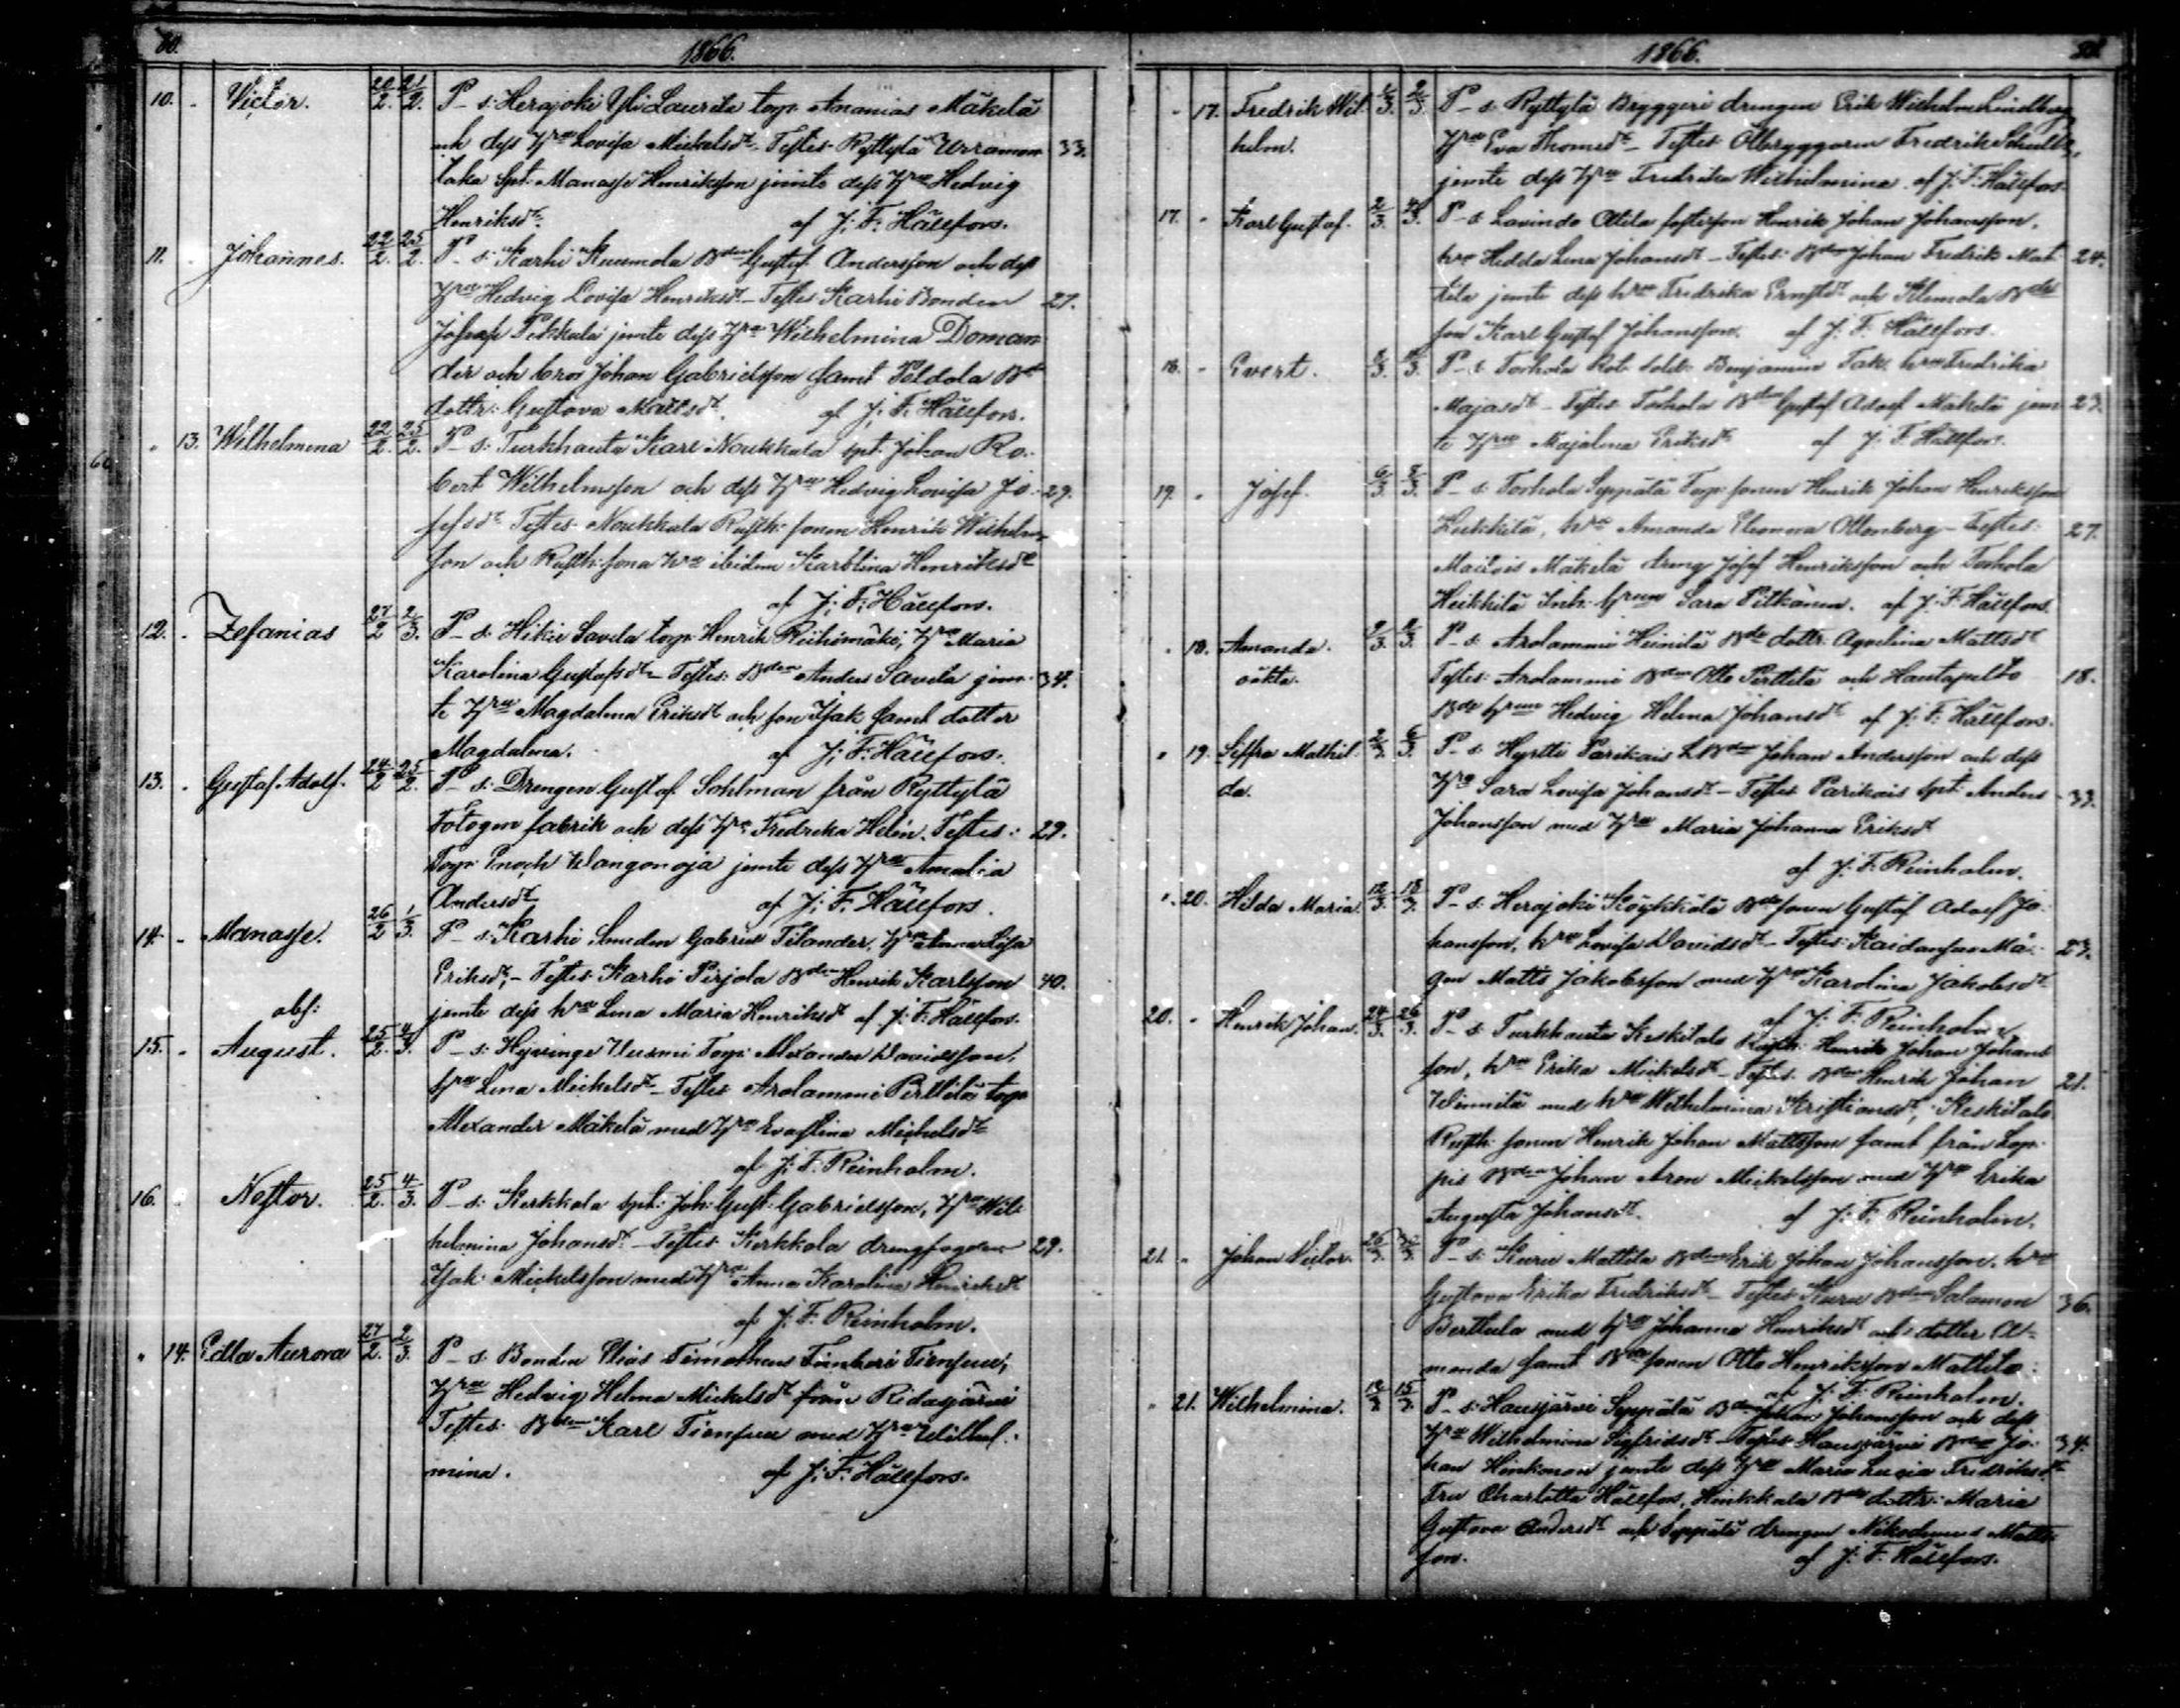 80.
1866.
10. Victor. 20/2. 21/2. P. s: Herajoki Yli Laurila torp. Ananias Mäkelä
och dess hru Lovisa Mickelsdr. Testes Ryttylä 33.
Spt. Manasse Henriksson jemte dess Hru Hedvig
Henriksdr. af J. F. Hällfors.
11. Johannes. 22/2. 25/2. P. s: Karhi Kuumola Bden Gustaf Andersson och dess
Hru Hedvig Lovisa Henriksdr. Testes Karhi Bonden 27.
Josep Pekkala jemte dess Hru Wilhelmina Doman
der och bror Johan Gabrielsson samt Peldola Bde
dottr: Gustava Mattsdr. af J. F. Hällfors.
" 13. Wilhelmina 22/2. 25/2. P. s: Turkhauta Kare Noukkala spt. Johan Ro-
bert Wilhelmsson och dess Hru Hedvig Lovisa Jo- 29.
sefsdr. Testes Noukkala Rusth: sonen Henrik Wilhelms
son och Rusth: sona hru ibidem Karolina Henriksdr.
af J. F. Hällfors.
12. Zefanias 27/2 2/3. P. s: Hikie Savela torp. Henrik Riihimäki, Hru Maria
Karolina Gustafsdr. Testes: Bden Anders Savela jem- 34.
te Hru Magdalena Eriksdr och son Isak samt dotter
Magdalena. af J. F. Hällfors.
13. Gustaf Adolf. 24/2 25/2. P. s: Drengen Gustaf Sohlman från Ryttylä
Fotogen fabrik och dess Hru Fredrika Helin. Testes: 29.
Torp. Enoch Wangonoja jemte dess Hru Amalia
Andersdr. af J. F. Hällfors.
14. Manasse. 26/2 1/3. P. s: Karhi Smeden Gabriel Tilander, Hru Anna Lisa
Eriksdr. Testes Karhi Perjola Bden Henrik Karlsson 40.
jemte dess hru Lena Maria Henriksdr af J. F. Hällfors.
obs:
15. August. 25/2. 4/3. P. s: Hyvinge Uusmi Torp. Alexander Davidsson,
hru Lena Mickelsdr. Testes Arolammi Perttilä torp
Alexander Mäkelä med Hru Evastina Michelsdr.
af J. F. Reinholm.
16. Nestor. 25/2. 4/3. P. s: Kerkkola spt: Joh: Gust: Gabrielsson, Hru Wil-
helmina Johansdr. Testes Kerkkola drengfogden 29.
Isak Mickelsson med Hru Anna Karolina Henriksdr.
af J. F. Reinholm.
" 14. Edla Aurora 27/2. 2/3. P. s. Bonden Elias Timotheus
Hru Hedvig Helena Mickelsdr från Ridasjärvi
Testes Bden Karl med Hru Wilhel-
mina. af J. F. Hällfors.
1866.
81.
" 17. Fredrik Wil- 1/3. 2/3. P. s. Ryttylä Bryggeri drengen Erik Wilhelm Lindberg
helm. Hru Eva Thomsdr. Testes Ölbryggaren Fredrik Schultz,
jemte dess Hru Fredrika Wilhelmina. af J. F. Hällfors.
17. Karl Gustaf. 2/3. 4/3. P. s. Lavinto Attila fosterson Henrik Johan Johansson,
hru Hedda Lena Johansdr. Testes: Bden Johan Fredrik Mat- 24.
tila jemte dess hru Fredrika Ernstdr och Klemola Bde
son Karl Gustaf Johansson. af J. F. Hällfors.
18. Evert. P. s. Torhola Rot. Sold. Benjamin Tak. hru Fredrika
Majasdr. Testes Torhola Bden Gustaf Adolf Mäkelä jem- 23.
te Hru Majalena Eriksdr. af J. F. Hällfors.
19. Josef. 6/3. 8/3. P. s. Torhola Seppälä Torp. sonen Henrik Johan Henriksson
hru Amanda Eleonora Ollonberg. Testes: 27.
Mäkelä dreng Josef Henriksson och Torhola
Heikkilä Inh. Sara Pitkänen. af J. F. Hällfors.
" 18. Amanda. P. s. Arolammi Heinilä Bde dottr. Agnelina Mattsdr
oäkta. Testes: Arolammi Bden Otto Perttilä och Hautapelto 18.
Bde Hedvig Helena Johansdr. af J. F. Hällfors.
" 19. Siffra Mathil- 2/3. 6/3. P. s. Hyrtti Parikais Johan Andersson och dess
da. Hru Sara Lovisa Johansdr. Testes Parikais spt. Anders 33.
Johansson med Hru Maria Johanna Eriksdr
af J. F. Reinholm.
" 20. Hilda Maria. 12/3. 18/3. P. s: Herajoki Köykkälä Bde sonen Gustaf Adolf Jo-
hansson, hru Lovisa Davidsdr. Testes: 23.
Matts Jakobsson med Hru Karolina Jakobsdr.
af J. F. Reinholm
20. Henrik Johan. 24/3. 26/3. P. s: Turkhauta Keskitalo Rusth: Henrik Johan Johans
son, hru Erika Mickelsdr. Testes. Bden Henrik Johan 21.
med hru Wilhelmina Kristiansdr, Keskitalo
Rusth: sonen Henrik Johan Mattsson samt från Lop-
pis Bden Johan Aron Mickelsson med Hru Erika
Augusta Johansdr. af J. F. Reinholm.
21. Johan Victor. P. s: Kuru Mattila Bden Erik Johan Johansson, hru
Gustava Erika Fredriksdr. Testes Kuru Bden Salamon 36.
Berttula med hru Johanna Henriksdr och dotter A-
manda samt Bde sonen Otto Henriksson Mattila
af J. F. Reinholm.
" 21. Wilhelmina. 12/3. 15/3. P. s: Hausjärvi Seppälä Bden Johan Johansson och dess
Hru Wilhelmina Sigfridsdr. Testes: Hausjärvi Bden Jo- 34.
han Hinkonen jemte dess Hru Maria Lucia Fredriksdr
Fru Charlotta Hällfors, Hinkkala Bde dottr: Maria
Gustava Andersdr och Seppälä drengen Nikodemus Matts
son. af J. F. Hällfors.